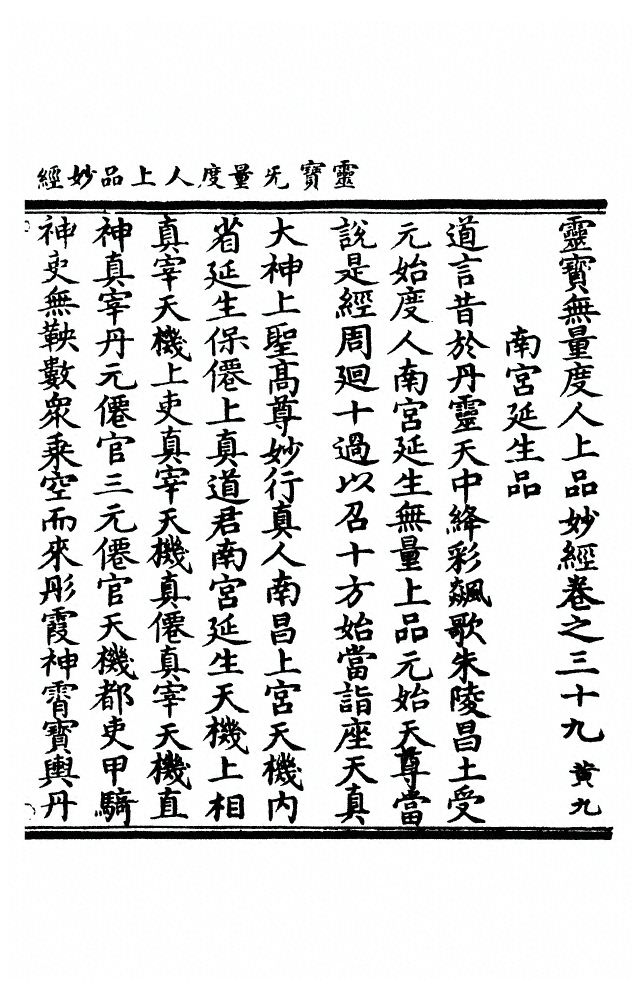 靈寶旡量度人上品妙經
靈寶無量度人上品妙經卷之三十九 黄九
南宮延生品
道言昔於丹靈天中絳彩飆歌朱陵昌土受
元始度人南宮延生無量上品元始天尊當
說是經周廻十過以召十方始當詣座天真
大神上聖高尊妙行真人南昌上宮天機内
省延生保僊上真道君南宮延生天機上相
真宰天機上吏真宰天機真僊真宰天機直
神真宰丹元僊官三元僊官天機都吏甲騎
神吏無鞅數衆乘空而來彤霞神霄寶輿丹